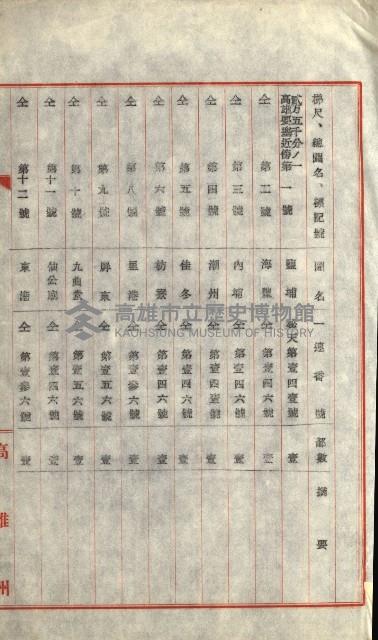 梯尺、總圖名、標記號 圖名 一連番號 部數 摘要
貳万五千分ノ一
高雄要塞近傍第一號 鹽埔 秘天第壹四壹號 壹
仝 第二號 海豐 仝 第壹四六號 壹
仝 第三號 內埔 仝 第壹四六號 壹
仝 第四號 潮州 仝 第壹四壹號 壹
仝 第五號 佳冬 仝 第壹四六號 壹
仝 第六號 枋寮 仝 第壹四六號 壹
仝 第八號 里港 仝 第壹參六號 壹
仝 第九號 屏東 仝 第壹五六號 壹
仝 第十號 九曲堂 仝 第壹五六號 壹
仝 第十一號 仙公廟 仝 第壹四六號 壹
仝 第十二號 東港 仝 第壹參六號 壹
高雄州
高雄市立歷史博物館
KAOHSIUNG MUSEUM OF HISTORY